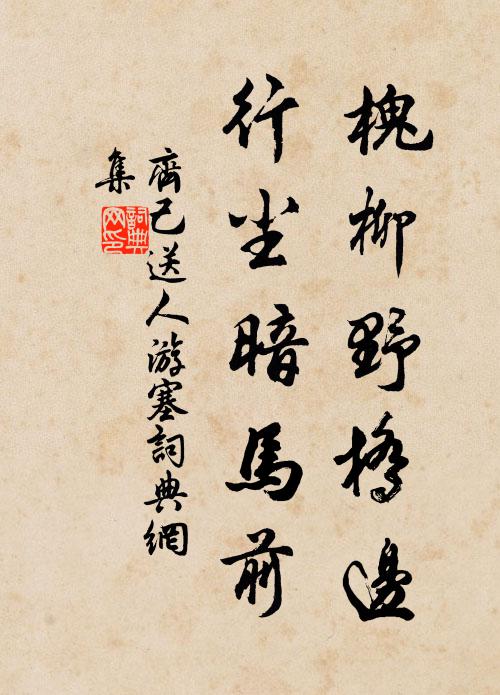 槐柳野橋邊
行尘暗馬前
齊己送人游塞詞典網
集
詞典网印